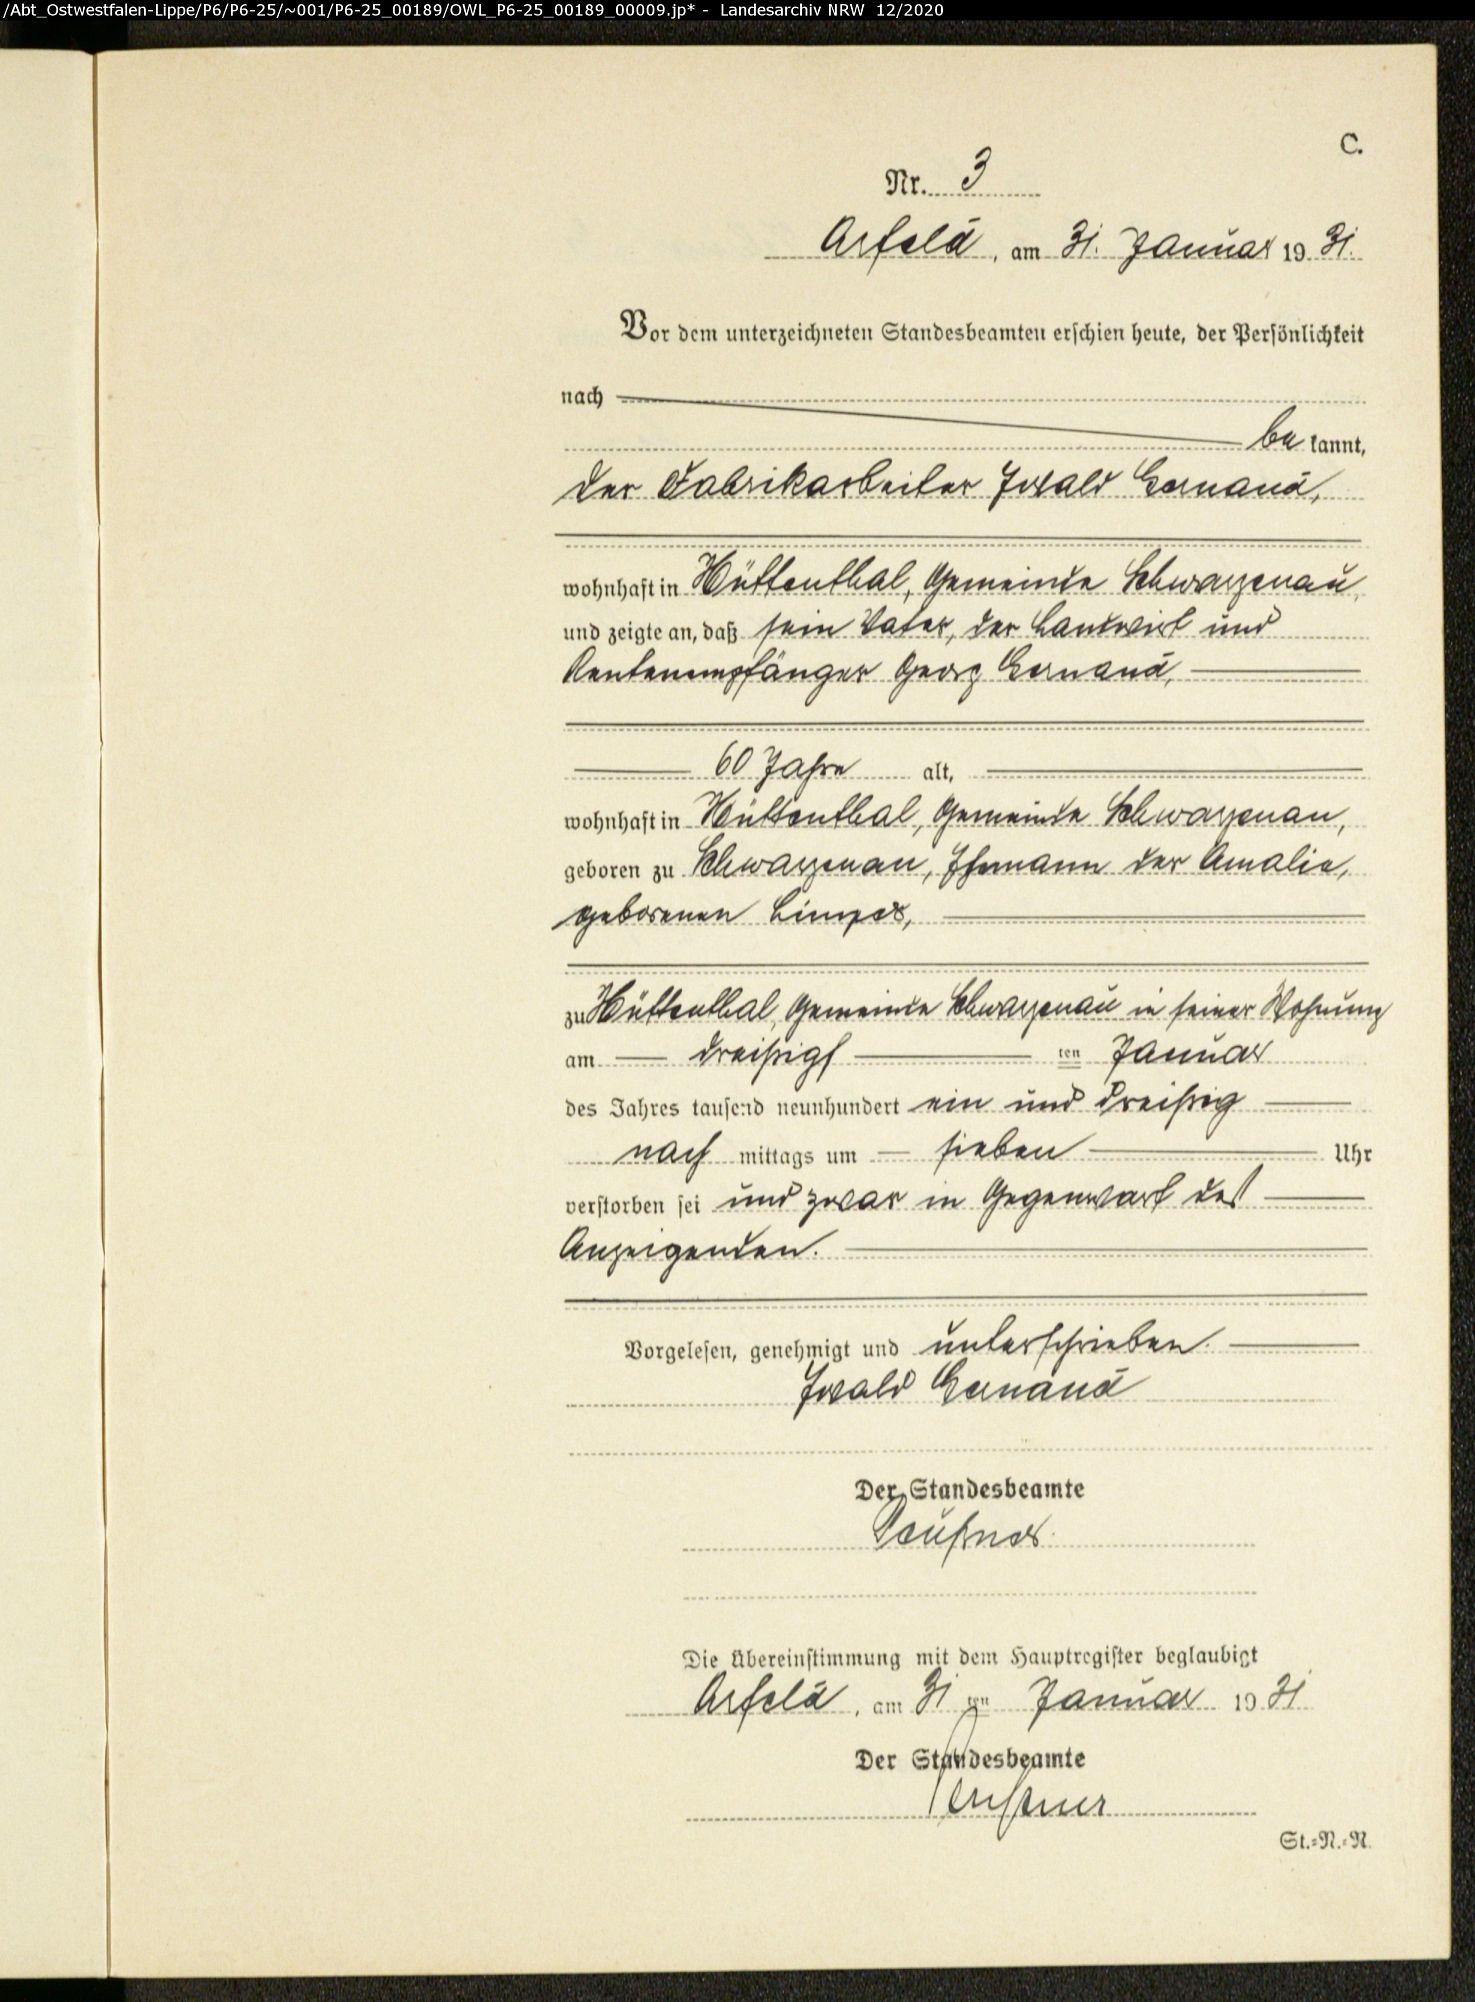 /Abt_Ostwestfalen-Lippe/P6/P6-25/~001/P6-25_00189/OWL_P6-25_00189_00009.jp* - Landesarchiv NRW 12/2020
C.
Nr. 3
Arfeld, am 31. Januar 1931.
Vor dem unterzeichneten Standesbeamten erschien heute, der Persönlichkeit
nach
be kannt,
der Fabrikarbeiter Ewald Gernand,
wohnhaft in Hüttenthal, Gemeinde Schwarzenau,
und zeigte an, daß sein Vater, der Landwirt und
Rentenempfänger Georg Gernand,
60 Jahre alt,
wohnhaft in Hüttenthal, Gemeinde Schwarzenau,
geboren zu Schwarzenau, Ehemann der Amalie,
geborenen Limper,
zu Hüttenthal, Gemeinde Schwarzenau in seiner Wohnung
am dreißigsten Januar
des Jahres tausend neunhundert ein und dreißig
nach mittags um sieben Uhr
verstorben sei und zwar in Gegenwart des
Anzeigenden.
Vorgelesen, genehmigt und unterschrieben.
Ewald Gernand
Der Standesbeamte
Die Übereinstimmung mit dem Hauptregister beglaubigt
Arfeld, am 31 ten Januar 1931
Der Standesbeamte
St.=N.=N.